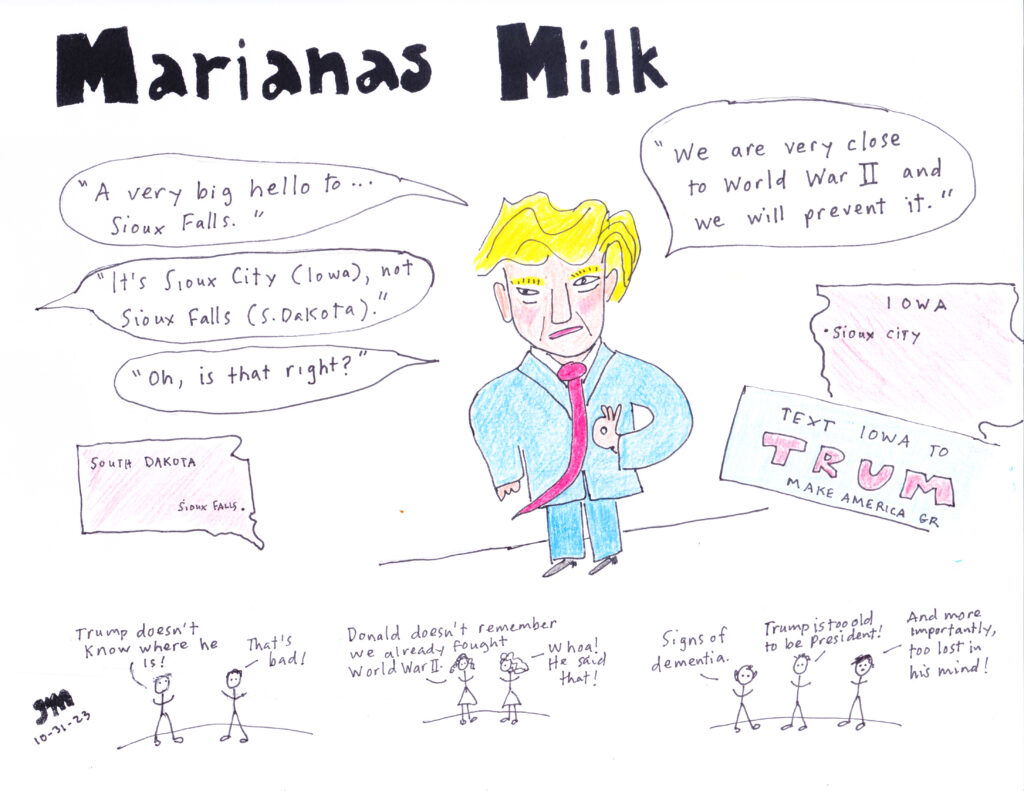 Marianas Milk
"A very big hello to...
Sioux Falls."
"It's Sioux City (Iowa), not
Sioux Falls (S. Dakota)."
"Oh, is that right?"
"We are very close
to World War II and
we will prevent it."
IOWA
Sioux City
TEXT IOWA TO
TRUM
MAKE AMERICA GR
SOUTH DAKOTA
Sioux Falls
Trump doesn't
know where he
is!
That's
bad!
Donald doesn't remember
we already fought
World War II.
Whoa!
He said
that!
Signs of
dementia.
Trump is too old
to be President!
And more
importantly,
too lost in
his mind!
10-31-23